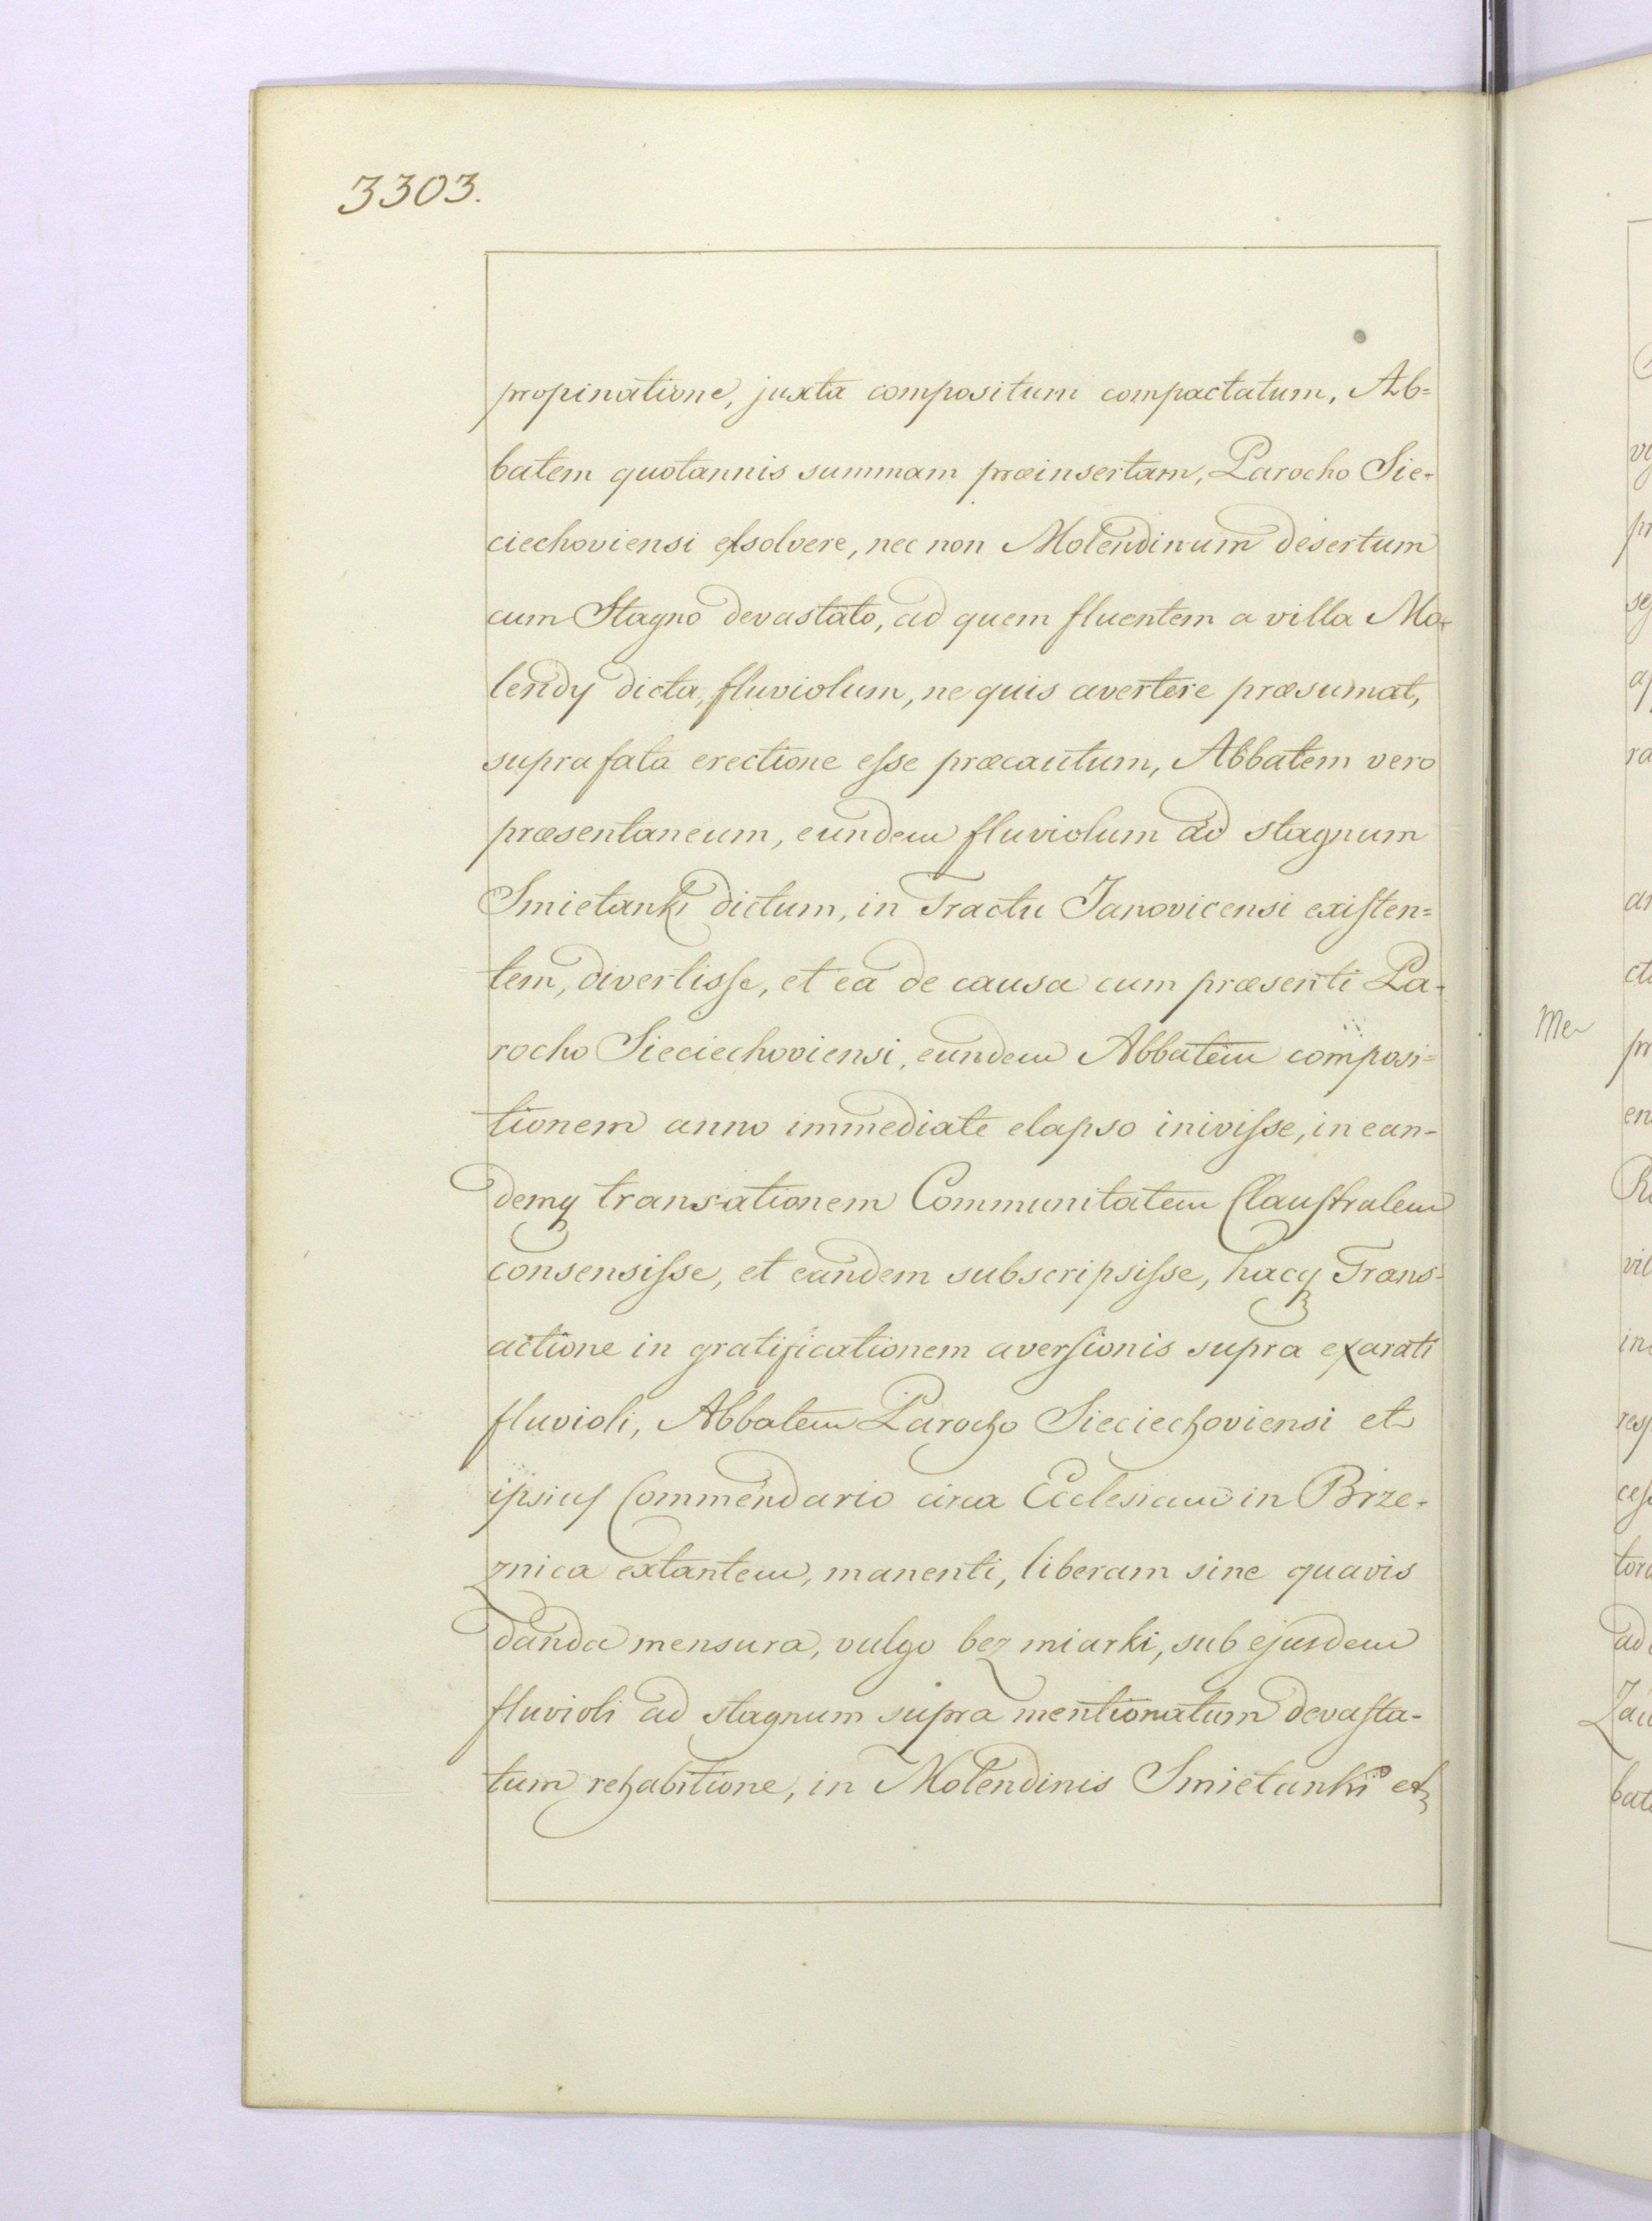 3303.
propinatione, juxta compositum compactatum, Ab=
batem quotannis summam præinsertam, Parocho Sie-
ciechoviensi exsolvere, nec non Molendinum desertum
cum Stagno devastato, ad quem fluentem a villa Mo-
lendy dicta, fluviolum, ne quis avertere præsumat,
suprafata erectione esse præcautum, Abbatem vero
præsentaneum, eundem fluviolum ad stagnum
Smietanki dictum, in Tractu Janovicensi existen=
tem, divertisse, et ea de causa cum præsenti Pa-
rocho Sieciechoviensi, eundem Abbatem composi=
tionem anno immediate elapso inivisse, in ean-
demq transationem Communitatem Claustralem
consensisse, et eandem subscripsisse, hacq Trans-
actione in gratificationem aversionis supra exarati
fluvioli, Abbatem Parocho Sieciechoviensi et
ipsius Commendario circa Ecclesiam in Brze-
znica extantem, manenti, liberam sine quavis
danda mensura, vulgo bez miarki, sub ejusdem
fluvioli ad stagnum supra mentionatum devasta-
tum rehabitione, in Molendinis Smietanki et
Me